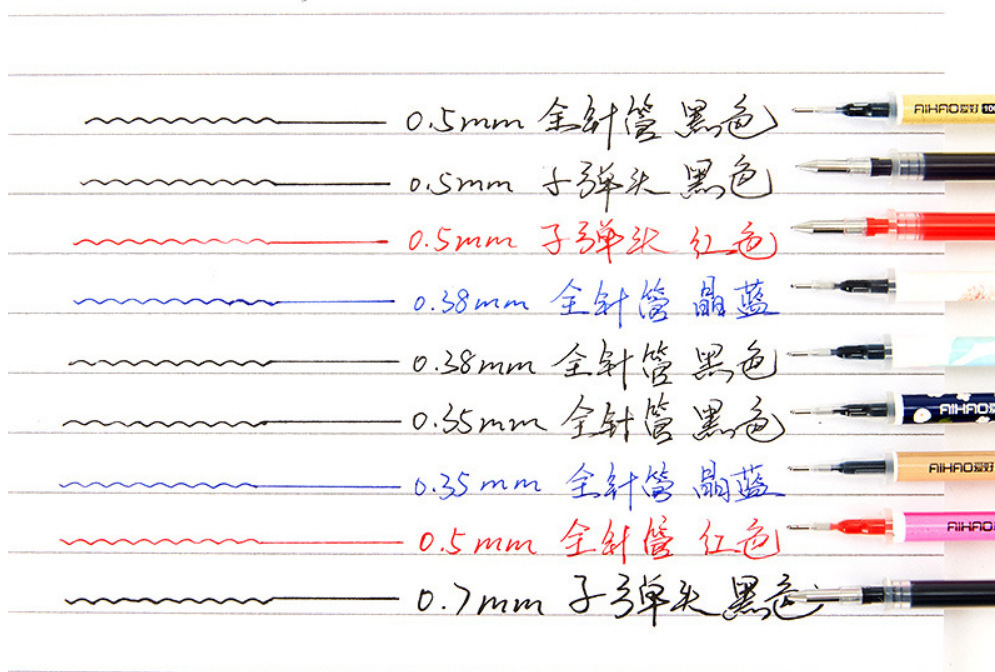 0.5mm 全针管 黑色 AIHAO爱好
0.5mm 子弹头 黑色
0.5mm 子弹头 红色
0.38mm 全针管 晶蓝
0.38mm 全针管 黑色
0.35mm 全针管 黑色 AIHAO
0.35mm 全针管 晶蓝 AIHAO爱好
0.5mm 全针管 红色 AIHAO
0.7mm 子弹头 黑色